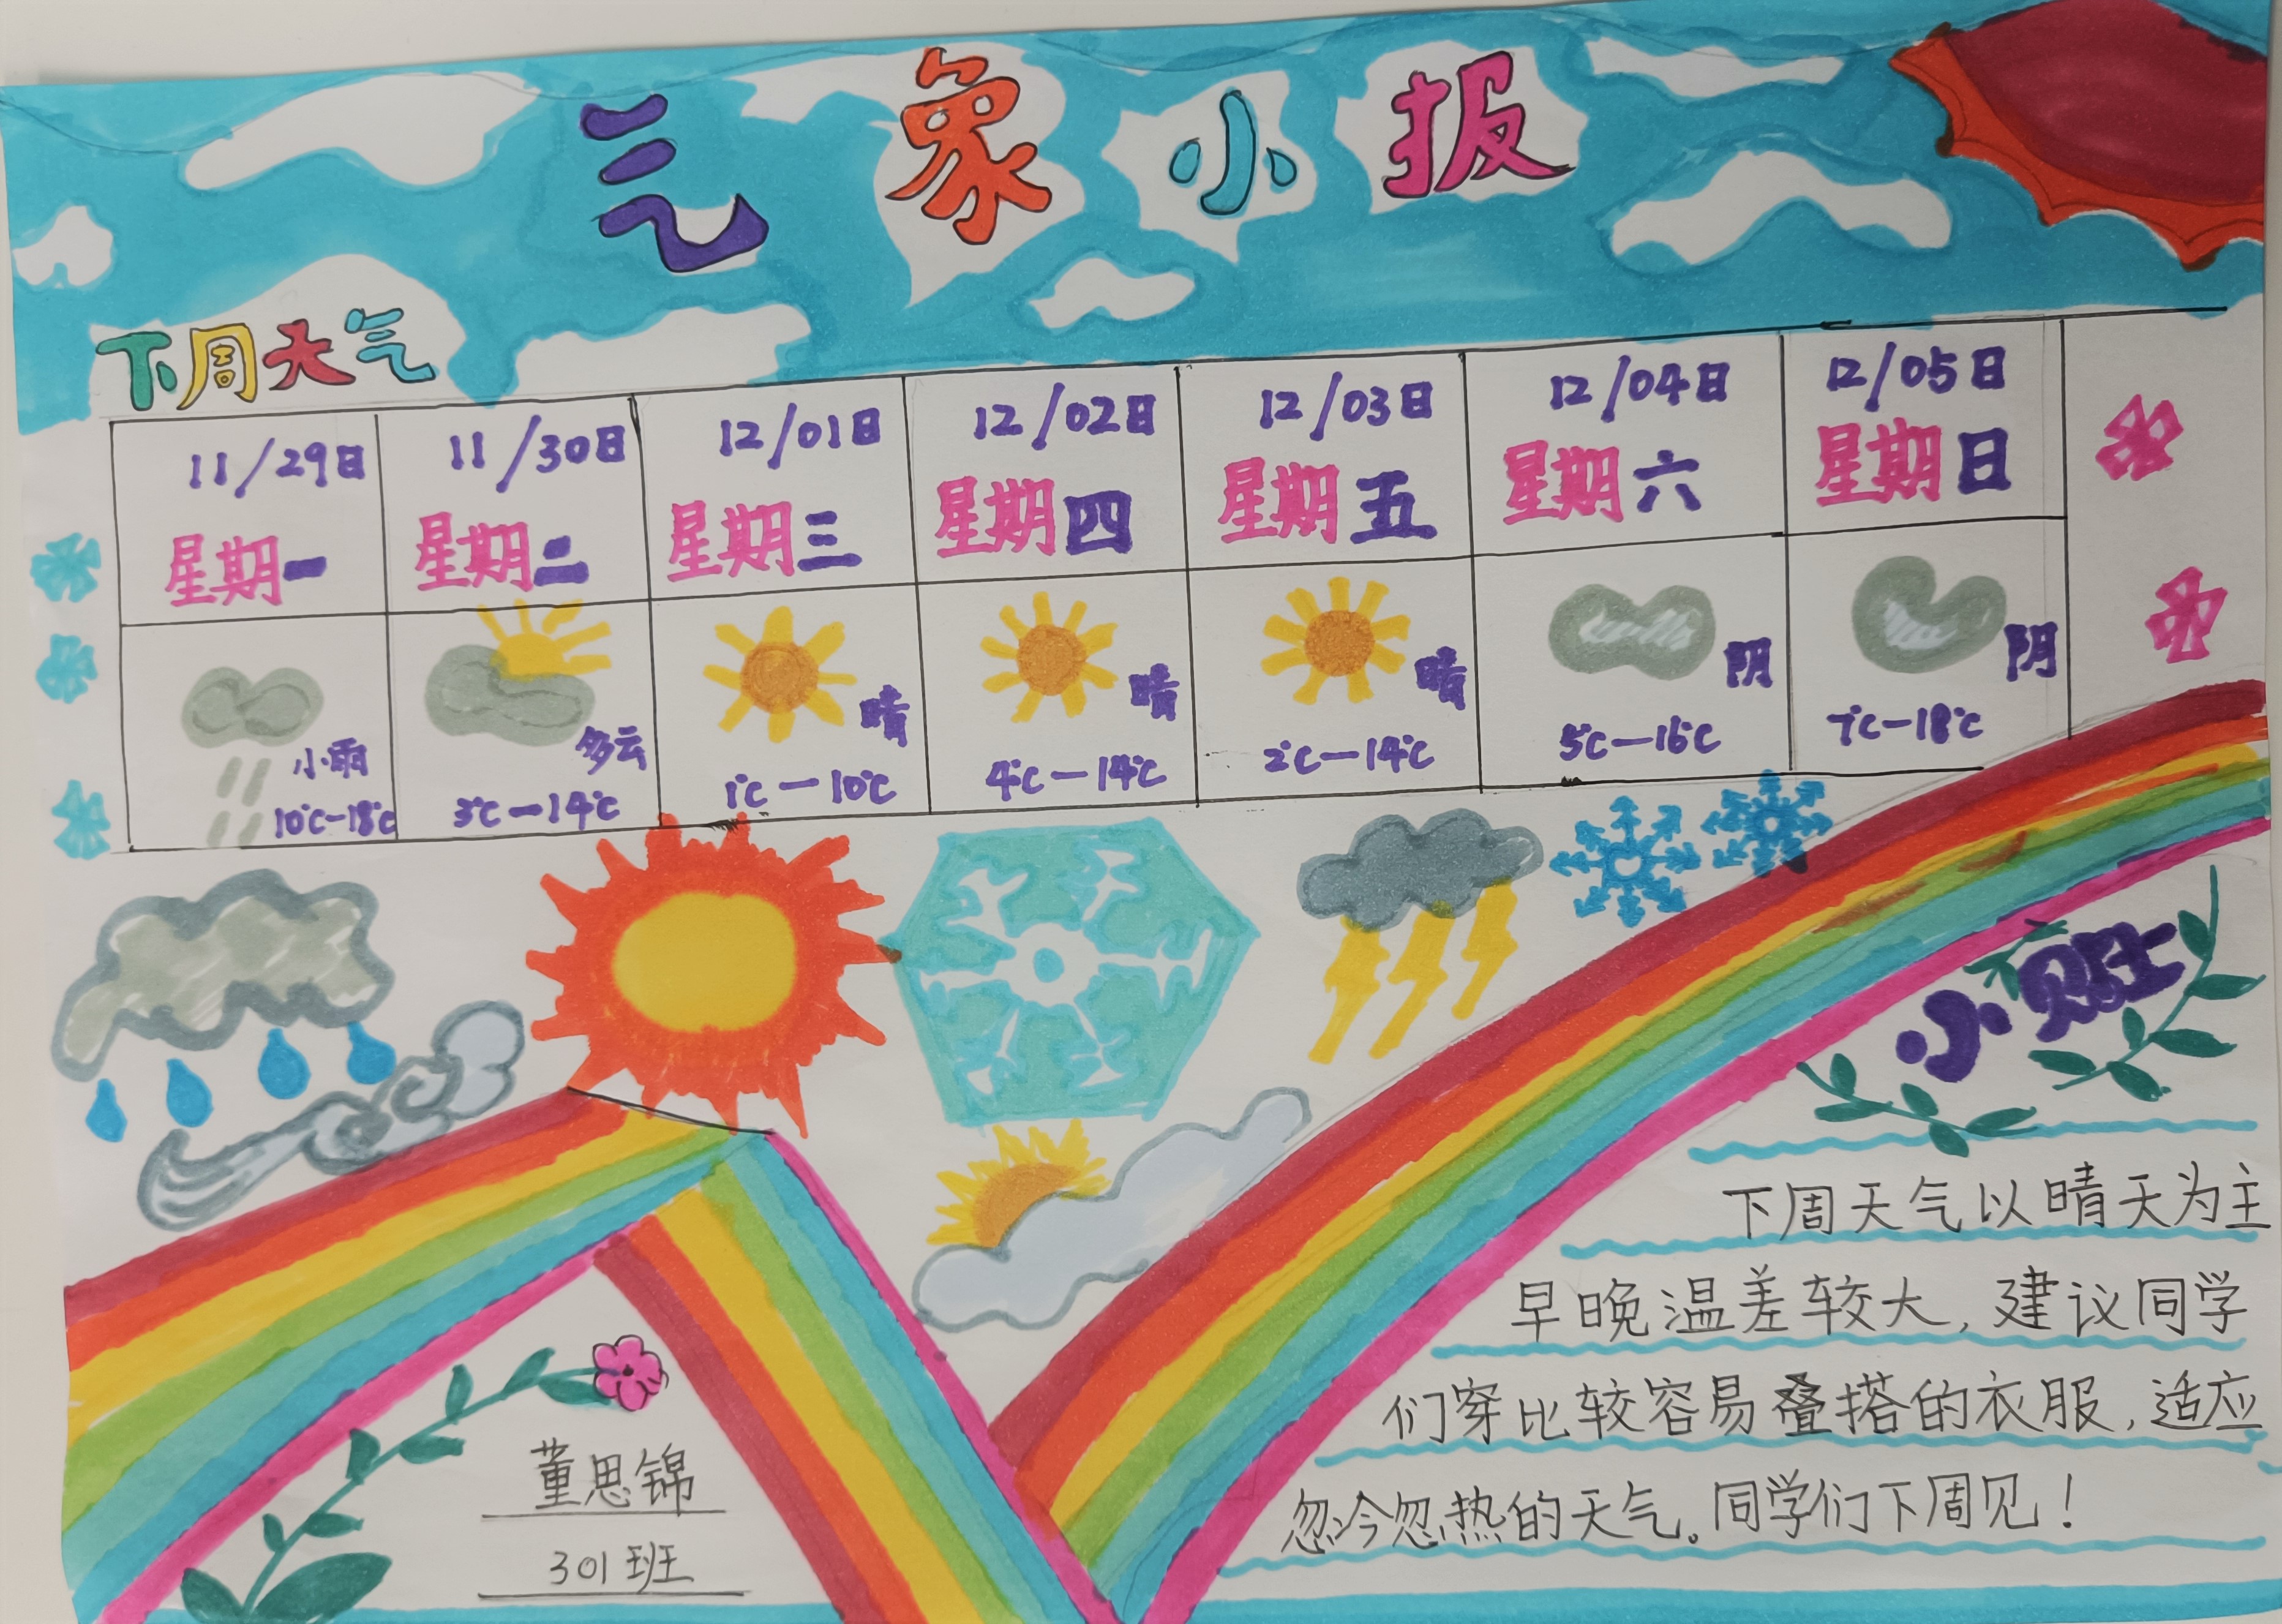 气象小报
下周天气
11/29日 11/30日 12/01日 12/02日 12/03日 12/04日 12/05日
星期一 星期二 星期三 星期四 星期五 星期六 星期日
小雨 多云 晴 晴 晴 阴 阴
10℃-18℃ 3℃-14℃ 1℃-10℃ 4℃-14℃ 2℃-14℃ 5℃-16℃ 7℃-18℃
小贴士
下周天气以晴天为主
早晚温差较大,建议同学
们穿比较容易叠搭的衣服,适应
忽冷忽热的天气。同学们下周见!
董思锦
301班